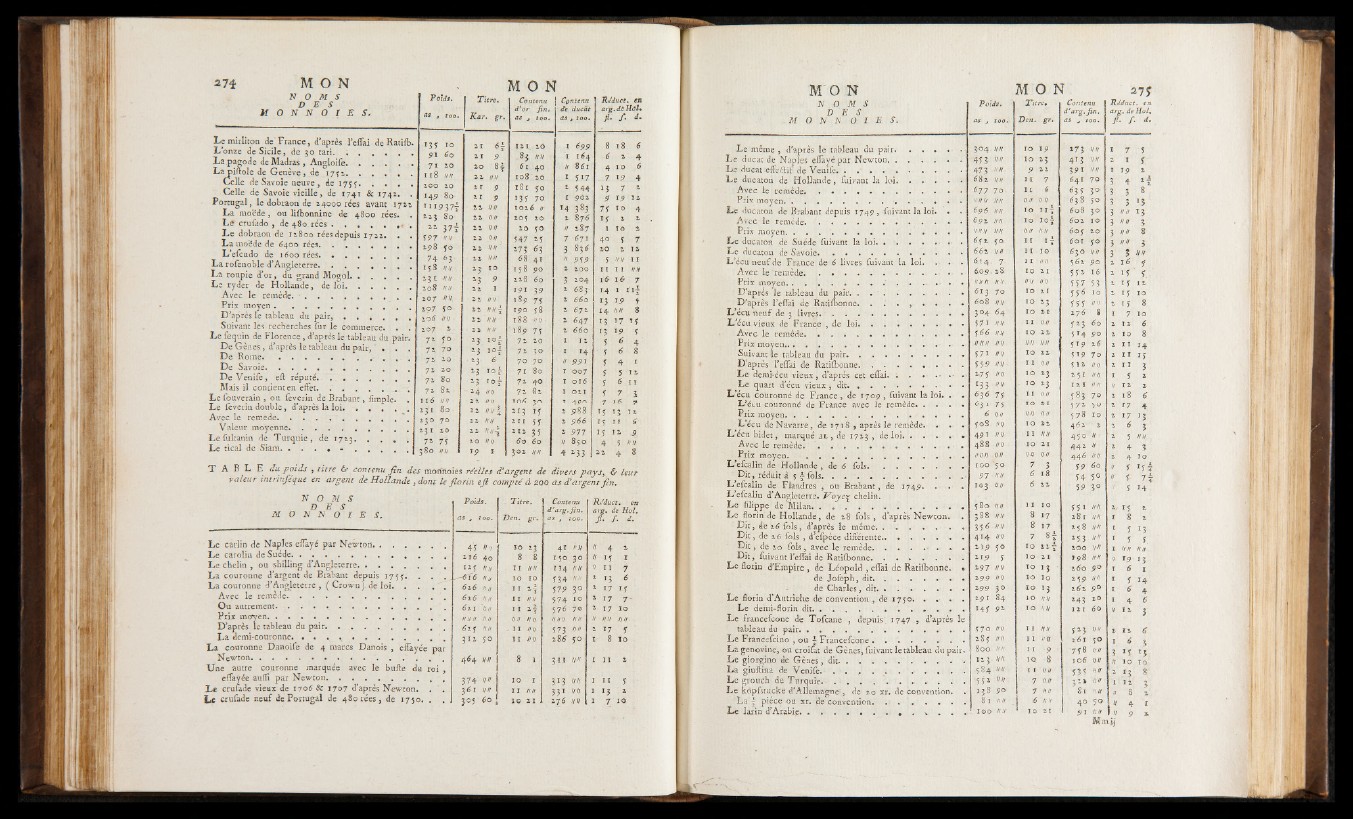 274 M O N M O N
N O M S
D E S
M O N N O I E S.
Poids. Titre. Contenu d'or fin. Contenu de ducat Réduct. en arg. de Hol.
as , 100. Kar. gr. as , 100. as , 100. fl. s. d.
Le mirliton de France, d'après l'essai de Ratisb. 135 10 21 6½ 121 20 1 699 8 18 6
L'onze de Sicile, de 30 tari. 91 60 21 9 83 〃〃 1 164 6 2 4
La pagode de Madras, Angloise. 71 20 20 8¼ 61 40 〃 861 4 10 6
La pistole de Genève, de 1752. 118 〃〃 22 〃〃 108 20 1 517 7 19 4
Celle de Savoie neuve, de 1755. 200 20 21 9 181 50 2 544 13 7 2
Celle de Savoie vieille, de 1741 & 1742. 149 80 21 9 135 70 1 902 9 19 12
Portugal, le dobraon de 24000 rées avant 1722 1119 37½ 22 〃〃 1026 〃 14 383 75 10 4
La moëde, ou lisbonnine de 4800 rées. 223 80 22 〃〃 205 10 2 876 15 2 2
Le crusado, de 480 rées 22 37½ 22 〃〃 20 50 〃 287 1 10 2
Le dobraon de 12800 rées depuis 1722. 597 〃〃 22 〃〃 547 25 7 671 40 5 7
La moëde de 6400 rées. 298 50 22 〃〃 273 63 3 836 20 2 12
L'escudo de 1600 rées. 74 63 22 〃〃 68 41 〃 959 5 〃〃 11
La rosenoble d'Angleterre. 158 〃〃 23 10 158 90 2 200 11 11 〃〃
La roupie d'or, du grand Mogol. 231 〃〃 23 9 228 60 3 204 16 16 7
Le ryder de Hollande, de loi. 208 〃〃 22 1 191 39 2 683 14 1 11½
Avec le remède. 207 〃〃 22 〃〃 189 75 2 660 13 19 4
Prix moyen 207 50 22 〃〃½ 190 58 2 672 14 〃〃 8
D'après le tableau du pair, 206 〃〃 22 〃〃 188 〃〃 2 647 13 17 15
Suivant les recherches sur le commerce. 207 2 22 〃〃 189 75 2 660 13 19 5
Le sequin de Florence, d'après le tableau du pair. 72 50 23 10½ 72 20 1 12 5 6 4
De Gènes, d'après le tableau du pair, 72 70 23 10½ 72 10 1 14 5 6 8
De Rome. 72 20 23 6 70 70 〃 991 5 4 1
De Savoie. 72 20 23 10½ 71 80 1 007 5 5 12
De Venise, est réputé. 72 80 23 10½ 72 40 1 016 5 6 11
Mais il contient en effet. 72 82 24 〃〃 72 82 1 021 5 7 3
Le souverain, ou severin de Brabant, simple. 116 〃〃 22 〃〃 106 30
Le severin double, d'après la loi. 231 80 22 〃〃½ 213 15 2 988 15 13 12
Avec le remede. 230 70 22 〃〃 211 55 2 966 15 11 6
Valeur moyenne. 231 20 22 〃〃¼ 212 35 2 977 15 12 9
Le sultanin de Turquie, de 1723. 72 75 20 〃〃 60 60 〃 850 4 5 〃〃
Le tical de Siam. 380 〃〃 19 1 302 〃〃 4 233 22 4 8
T A B L E du poids, titre & contenu fin des monnoies réelles d'argent de divers pays, & leur
valeur intrinséque en argent de Hollande, dont le florin est compté à 200 as d'argent fin.
N O M S
D E S
M O N N O I E S.
Poids. Titre. Contenu d'arg. fin. Réduct. en arg. de Hol.
as , 100. Den. gr. as , 100. fl. s. d.
Le carlin de Naples essayé par Newton. 45 〃〃 10 23 41 〃〃 〃 4 2
Le carolin de Suéde. 216 40 8 8 150 30 〃 15 1
Le chelin, ou shilling d'Angleterre. 125 〃〃 11 〃〃 114 〃〃 〃 11 7
La couronne d'argent de Brabant depuis 1755. 616 〃〃 10 10 534 〃〃 2 13 6
La couronne d'Angleterre, (Crown) de loi. 626 〃〃 11 2¾ 579 30 2 17 15
Avec le remède. 626 〃〃 11 〃〃 574 10 2 17 7
Ou autrement. 621 〃〃 11 2¾ 576 70 2 17 10
Prix moyen. 〃〃〃 〃〃 〃〃 〃〃 〃〃〃 〃〃 〃 〃〃 〃〃
D'après le tableau du pair. 625 〃〃 11 〃〃 573 〃〃 2 17 5
La demi-couronne. 312 50 11 〃〃 286 50 1 8 10
La couronne Danoise de 4 marcs Danois, essayée par
Newton. 464 〃〃 8 1 311 〃〃 1 11 2
Une autre couronne marquée avec le buste du roi,
essayée aussi par Newton. 374 〃〃 10 1 313 〃〃 1 11 5
Le crusade vieux de 1706 & 1707 d'après Newton. 361 〃〃 11 〃〃 331 〃〃 1 13 2
Le crusade neuf de Portugal de 480 rées, de 1750. 305 60 10 21 276 〃〃 1 7 10
M O N M O N 275
N O M S
D E S
M O N N O I E S.
Poids. Titre. Contenu d'arg. fin. Réduct. en arg. de Hol.
as , 100. Den. gr. as , 100. fl. s. d.
Le même, d'après le tableau du pair. 304 〃〃 10 19 273 〃〃 1 7 5
Le ducat de Naples essayé par Newton. 453 〃〃 10 23 413 〃〃 2 1 5
Le ducat effectif de Venise. 473 〃〃 9 22 391 〃〃 1 19 2
Le ducaton de Hollande, suivant la loi. 682 〃〃 11 7 641 70 3 4 2¾
Avec le remède. 677 70 11 6 635 30 3 3 8
Prix moyen. 〃〃〃 〃〃 〃〃 〃〃 638 50 3 3 13
Le ducaton de Brabant depuis 1749, suivant la loi. 696 〃〃 10 11½ 608 30 3 〃〃 13
Avec le remède. 692 〃〃 10 10½ 602 10 3 〃〃 3
Prix moyen. 〃〃〃 〃〃 〃〃 〃〃 605 20 3 〃〃 8
Le ducaton de Suéde suivant la loi. 652 50 11 1½ 601 50 3 〃〃 3
Le ducaton de Savoie. 662 〃〃 11 10 630 〃〃 3 3 〃〃
L'écu neuf de France de 6 livres suivant la loi. 614 7 11 〃〃 562 90 2 16 5
Avec le remède. 609 28 10 21 552 16 2 15 5
Prix moyen. 〃〃〃 〃〃 〃〃 〃〃 557 53 2 15 12
D'après le tableau du pair. 613 70 10 21 556 10 2 15 10
D'après l'essai de Ratisbonne. 608 〃〃 10 23 555 〃〃 2 15 8
L'écu neuf de 3 livres. 304 64 10 21 276 8 1 7 10
L'écu vieux de France, de loi. 571 〃〃 11 〃〃 523 60 2 12 6
Avec le remède. 566 〃〃 10 22 514 90 2 10 8
Prix moyen. 〃〃〃 〃〃 〃〃 〃〃 519 26 2 11 14
Suivant le tableau du pair. 571 〃〃 10 22 519 70 2 11 15
D'après l'essai de Ratisbonne. 559 〃〃 11 〃〃 512 〃〃 2 11 3
Le demi-écu vieux, d'après cet essai. 275 〃〃 10 23 251 〃〃 1 5 2
Le quart d'écu vieux; dit. 133 〃〃 10 23 121 〃〃 〃 12 2
L'écu couronné de France, de 1709, suivant la loi. 636 75 11 〃〃 583 70 2 18 6
L'écu couronné de France avec le remède. 631 75 10 21 572 50 2 17 4
Prix moyen. 6 〃〃 〃〃 〃〃 578 10 2 17 13
L'écu de Navarre, de 1718, après le remède. 508 〃〃 10 22 462 2 2 6 3
L'écu bidet, marqué LL, de 1723, de loi. 491 〃〃 11 〃〃 450 〃 2 5 〃〃
Avec le remède. 488 〃〃 10 21 442 〃 2 4 3
Prix moyen. 〃〃〃 〃〃 〃〃 〃〃 446 〃〃 2 4 10
L'escalin de Hollande, de 6 sols. 100 50 7 3 59 60 〃 5 15½
Dit, réduit à 5 ½ sols. 97 〃〃 6 18 54 50 〃 5 7¼
L'escalin de Flandres, ou Brabant, de 1749. 103 〃〃 6 22 59 30 〃 5 14
L'escalin d'Angleterre. Voyez chelin.
Le filippe de Milan. 580 〃〃 11 10 551 〃〃 2 15 2
Le florin de Hollande, de 28 sols, d'après Newton. 388 〃〃 8 17 281 〃〃 1 8 2
Dit, de 26 sols, d'après le même. 356 〃〃 8 17 258 〃〃 1 5 13
Dit, de 26 sols, d'espèce différente. 414 〃〃 7 8½ 253 〃〃 1 5 5
Dit, de 20 sols, avec le remède. 219 50 10 22½ 200 〃〃 1 〃〃 〃〃
Dit, suivant l'essai de Ratisbonne. 219 5 10 21 198 〃〃 〃 19 13
Le florin d'Empire, de Léopold, essai de Ratisbonne. 297 〃〃 10 13 260 90 1 6 1
de Joseph, dit. 299 〃〃 10 10 259 〃〃 1 5 14
de Charles, dit. 299 30 10 13 262 50 1 6 4
Le florin d'Autriche de convention, de 1750. 291 84 10 〃〃 243 20 1 4 6
Le demi-florin dit. 145 92 10 〃〃 121 60 〃 12 3
Le francescone de Toscane, depuis 1747, d'après le
tableau du pair. 570 〃〃 11 〃〃 523 〃〃 2 12 6
Le Francescino, ou ½ Francescone. 285 〃〃 11 〃〃 261 50 1 6 3
La genovine, ou croisat de Gènes, suivant le tableau du pair. 800 〃〃 11 9 758 〃〃 3 15 13
Le giorgino de Gènes, dit. 123 〃〃 10 8 106 〃〃 〃 10 10
La giustina de Venise. 584 〃〃 11 〃〃 535 〃〃 2 13 8
Le grouch du Turquie. 552 〃〃 7 〃〃 322 〃〃 1 12 3
Le kopfstucke d'Allemagne, de 20 xr. de convention. 138 90 7 〃〃 81 〃〃 〃 8 2
La ½ pièce ou xr. de convention. 81 〃〃 6 〃〃 40 50 〃 4 1
Le larin d'Arabie. 100 〃〃 10 21 91 〃〃 〃 9 2
M m ij